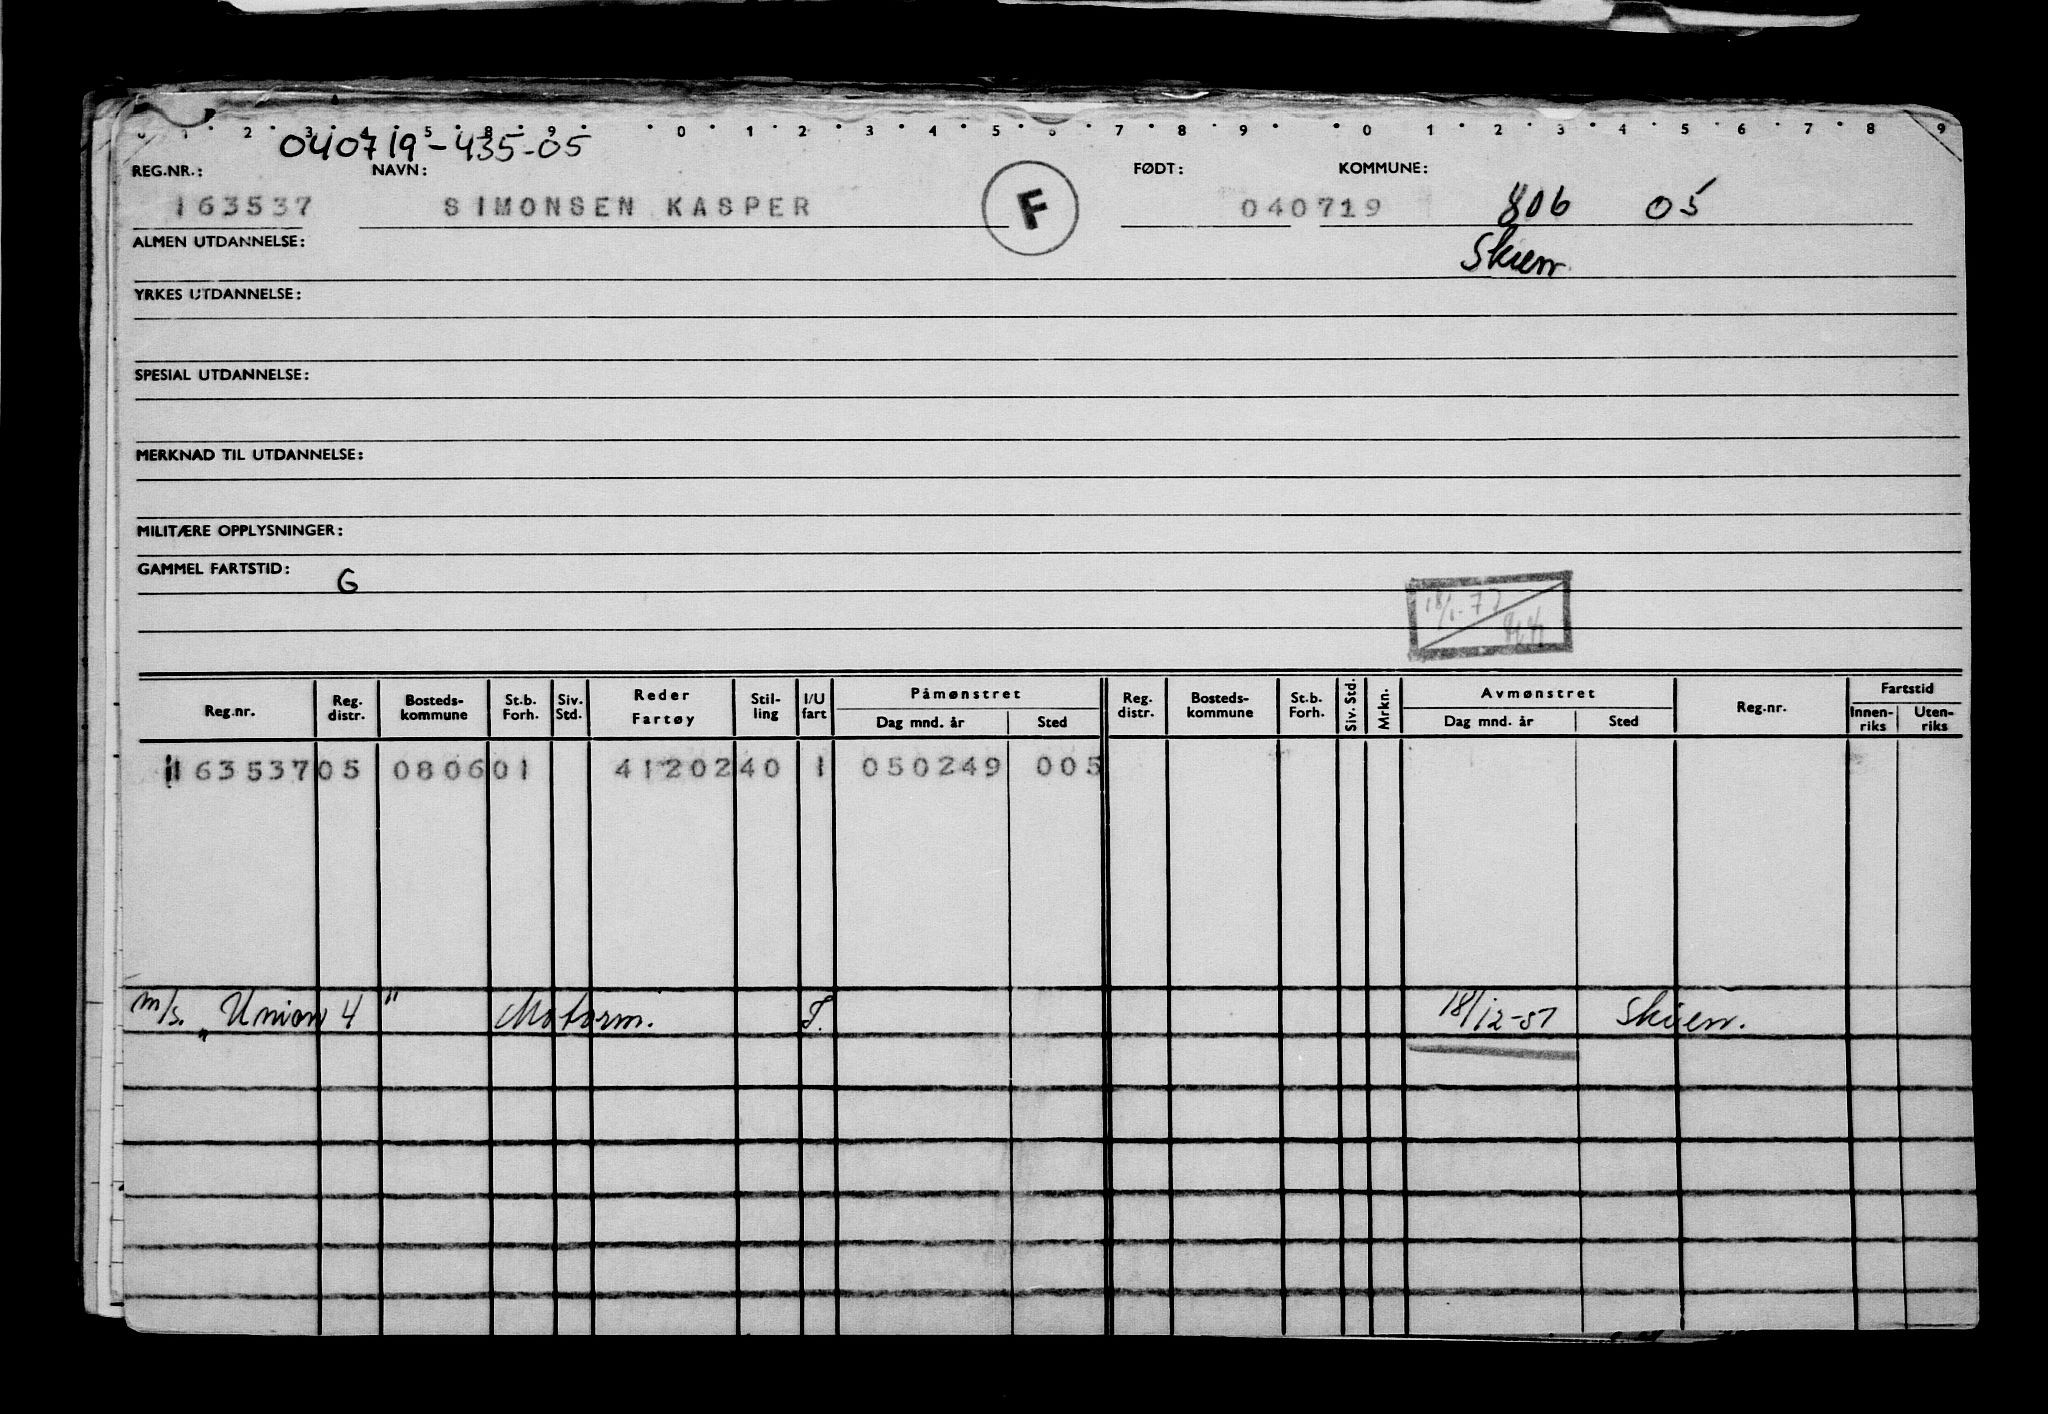 0 1 2 3 4 5 8 9 0 1 2 3 4 5 6 7 8 9 0 1 2 3 4 5 6 7 8 9
040719-435-05
REG.NR.: NAVN: FØDT: KOMMUNE:
163537 SIMONSEN KASPER F 040719 806 05
ALMEN UTDANNELSE: Skien
YRKES UTDANNELSE:
SPESIAL UTDANNELSE:
MERKNAD TIL UTDANNELSE:
MILITÆRE OPPLYSNINGER:
GAMMEL FARTSTID: G
18/1-72
Reg.nr. Reg. distr. Bosteds-kommune St.b. Forh. Siv. Std. Reder Fartøy Stil-ling I/U fart Påmønstret Dag mnd. år Sted Reg. distr. Bosteds-kommune St.b. Forh. Siv. Std. Mrkn. Avmønstret Dag mnd. år Sted Reg.nr. Fartstid Innen-riks Uten-riks
163537 05 0806 01 41202 40 1 050249 005
m/s. "Union 4" Motorm. I. 18/12-51 Skien.